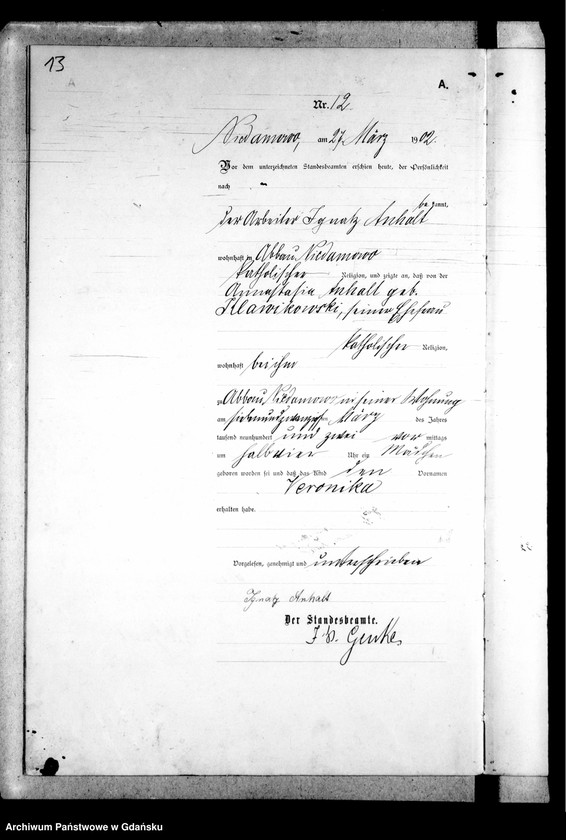 13
A.
Nr. 12.
Niedamowo, am 27 März 1902.
Vor dem unterzeichneten Standesbeamten erschien heute, der Persönlichkeit
nach
be kannt,
der Arbeiter Ignatz Anhalt
wohnhaft in Abbau Niedamowo
katholischer Religion, und zeigte an, daß von der
Annastasia Anhalt geb.
seiner Ehefrau
katholischer Religion,
wohnhaft bei ihm
zu Abbau Niedamowo in seiner Wohnung
am siebenundzwanzigsten März des Jahres
tausend neunhundert und zwei vor mittags
um halb vier Uhr ein Mädchen
geboren worden sei und daß das Kind den Vornamen
Veronika
erhalten habe.
Vorgelesen, genehmigt und unterschrieben
Ignatz Anhalt
Der Standesbeamte.
Archiwum Państwowe w Gdańsku